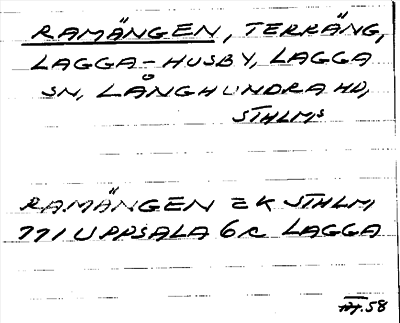 RAMÄNGEN, TERRÄNG,
LAGGA-HUSBY, LAGGA
SN, LÅNGHUNDRA HD,
STHLMS
RAMÄNGEN EK STHLM
771 UPPSALA 6c LAGGA
58